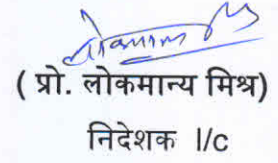 ( प्रो. लोकमान्य मिश्र)
निदेशक I/c